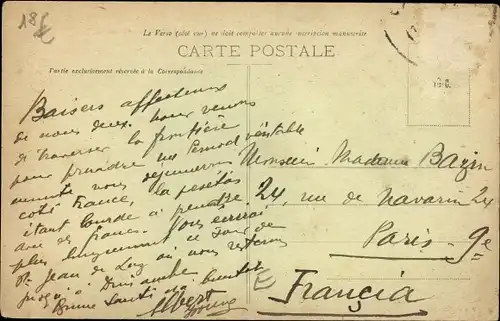 18 £
Le Verso (côté vue) ne doit comporter aucune inscription manuscrite
CARTE POSTALE
Partie exclusivement réservée à la Correspondance
Baisers affectueux
de nous deux. Nous venons
de traverser la frontière
pour prendre un Pernod véritable
nous déjeunerons
coté France, la pesetas
étant lourde à
avec des francs. Vous écrirai
plus longuement ce soir de
St Jean de Luz où nous restons
Dimanche
Bonne Santé
Albert
Monsieur Madame Bazin
24, rue de Navarin 24
Paris - 9e
E
Francia